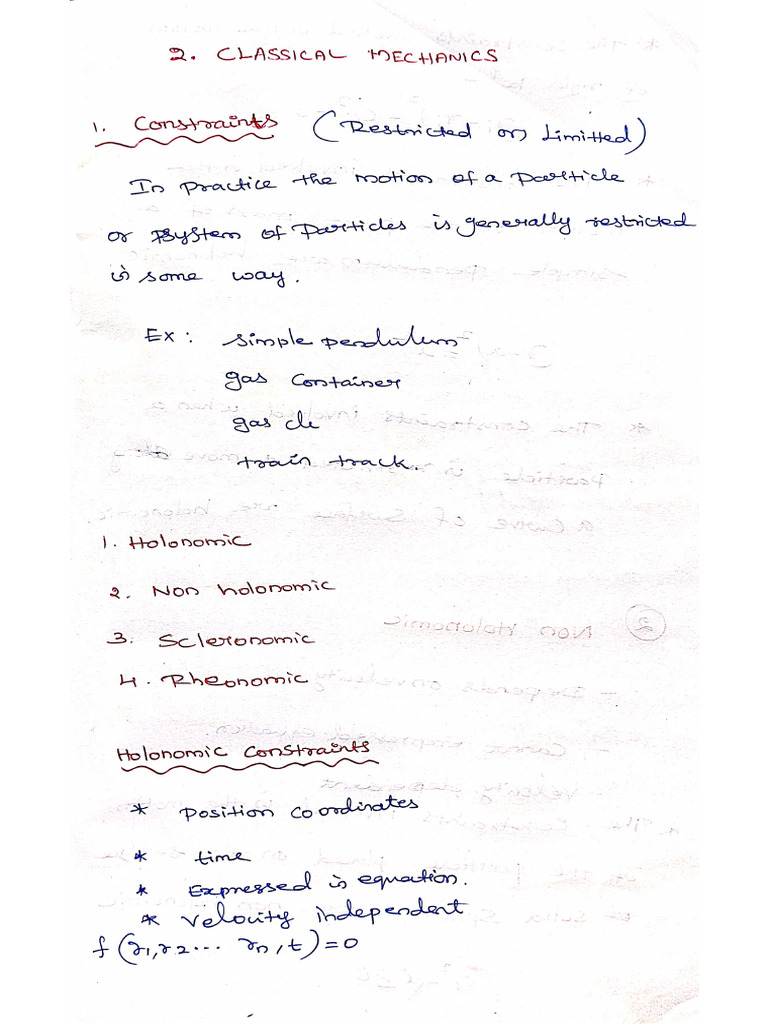 2. CLASSICAL MECHANICS
1. Constraints (Restricted or Limitted)
In practice the motion of a particle
or system of particles is generally restricted
in some way.
Ex: simple pendulum
gas container
gas cle
train track.
1. Holonomic
2. Non holonomic
3. Scleronomic
4. Rheonomic
Holonomic constraints
* position coordinates
* time
* Expressed in equation.
* velocity independent
f (r1, r2 ... rn, t) = 0